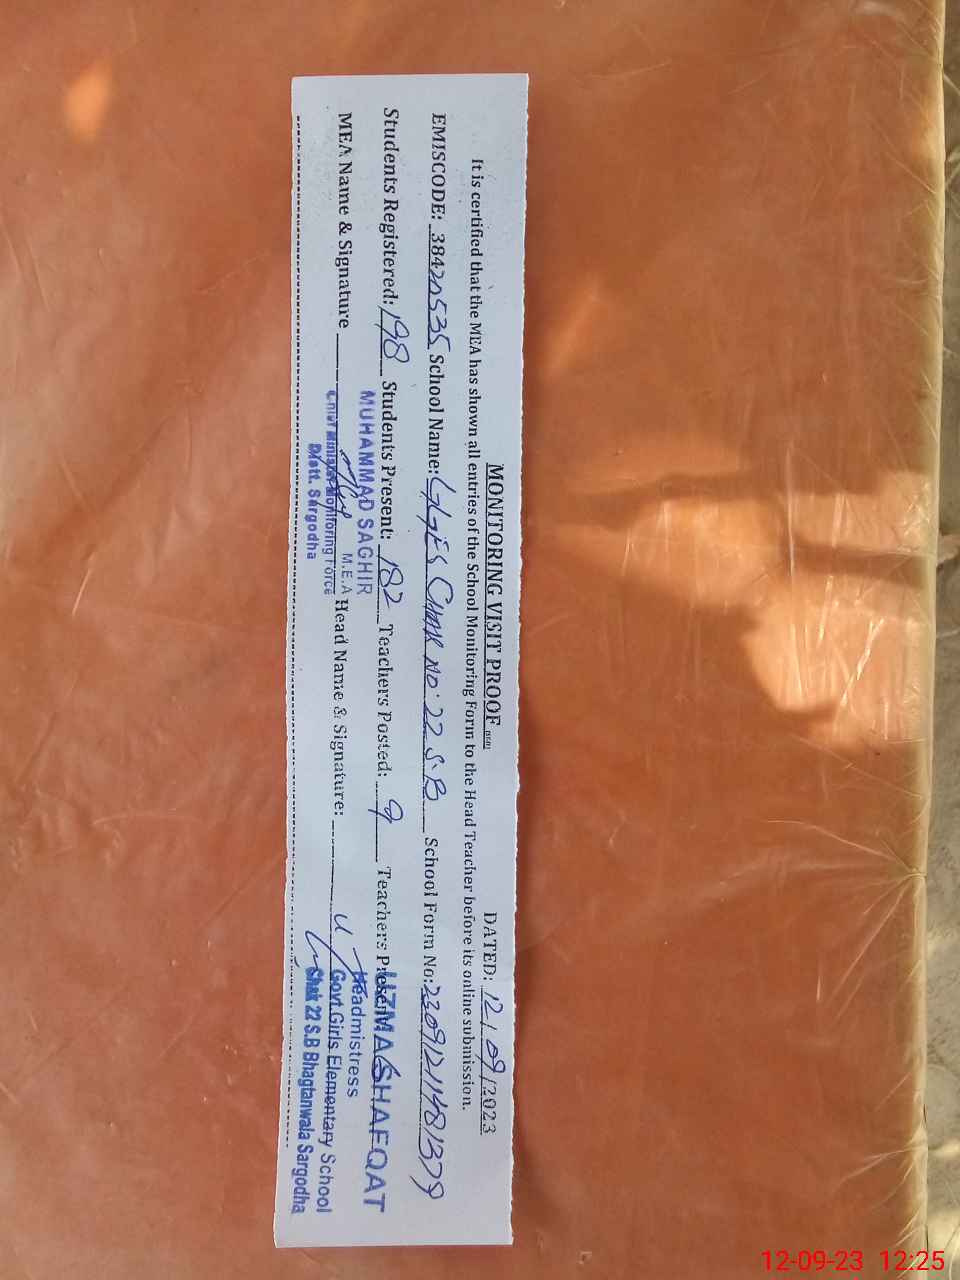 MONITORING VISIT PROOF
DATED: 12/09/2023
It is certified that the MEA has shown all entries of the School Monitoring Form to the Head Teacher before its online submission.
EMISCODE: 38420535 School Name: GGES Chak No. 22 S.B School Form No:
Students Registered: 198 Students Present: 182 Teachers Posted: 9 Teachers Present:
MUHAMMAD SAGHIR
M.E.A
UZMA SHAFQAT
MEA Name & Signature Head Name & Signature:
Headmistress
Chief Minister Monitoring Force
Govt.Girls Elementary School
Distt. Sargodha
Chak 22 S.B Bhagtanwala Sargodha
12-09-23 12:25